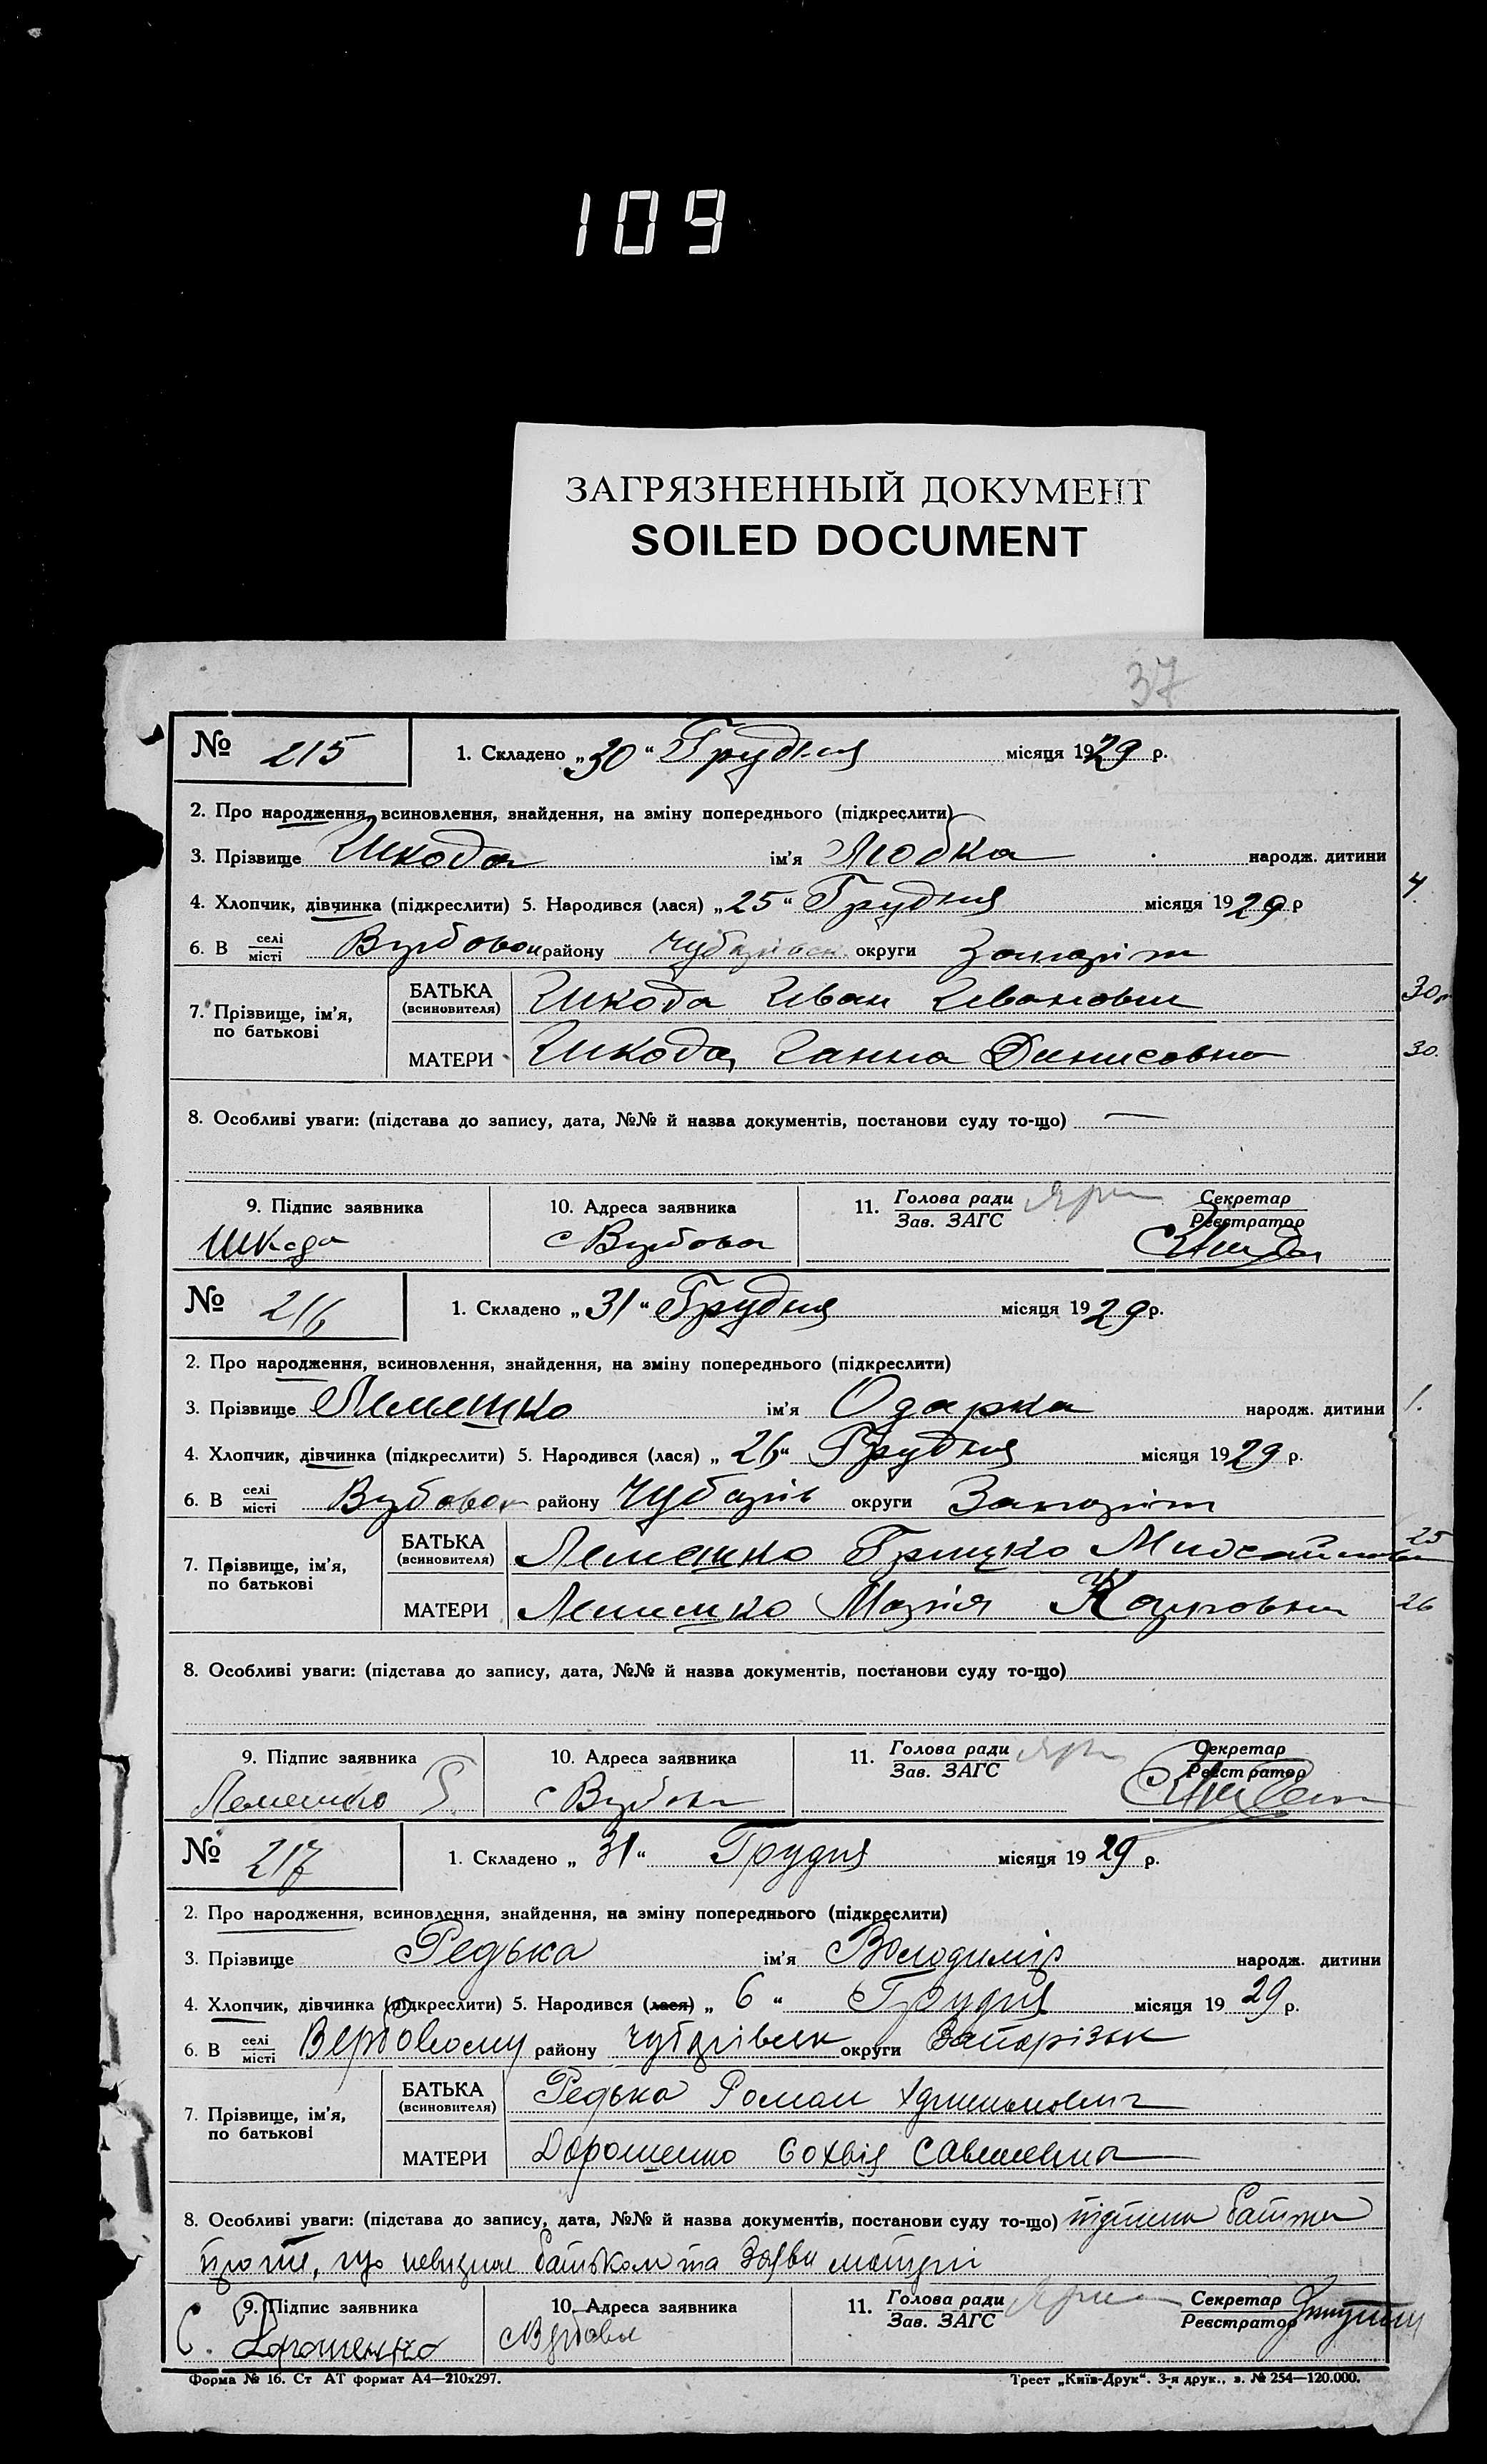 109
ЗАГРЯЗНЕННЫЙ ДОКУМЕНТ
SOILED DOCUMENT
37
№ 215 1. Складено „30“ Грудня місяця 1929 р.
2. Про народження, всиновлення, знайдення, на зміну попереднього (підкреслити)
3. Прізвище Шкода ім'я Любка народж. дитини
4
4. Хлопчик, дівчинка (підкреслити) 5. Народився (лася) „25“ Грудня місяця 1929 р
6. В селі місті району округи
7. Прізвище, ім'я, по батькові
БАТЬКА (всиновителя) Шкода Иван Иванович 30
МАТЕРИ Шкода Ганна Денисовна 30.
8. Особливі уваги: (підстава до запису, дата, №№ й назва документів, постанови суду то-що) —
9. Підпис заявника 10. Адреса заявника 11. Голова ради Зав. ЗАГС Секретар Реєстратор
Шкода с Вербова
№ 216 1. Складено „31“ Грудня місяця 1929 р.
2. Про народження, всиновлення, знайдення, на зміну попереднього (підкреслити)
3. Прізвище Лемешко ім'я Одарка народж. дитини 1.
4. Хлопчик, дівчинка (підкреслити) 5. Народився (лася) „26“ Грудня місяця 1929 р.
6. В селі місті району Чубарів округи
7. Прізвище, ім'я, по батькові
БАТЬКА (всиновителя) Лемешко Грицко 25
МАТЕРИ Лемешко Марія Карповна 26
8. Особливі уваги: (підстава до запису, дата, №№ й назва документів, постанови суду то-що)
9. Підпис заявника 10. Адреса заявника 11. Голова ради Зав. ЗАГС Секретар Реєстратор
Лемешко Г. с Вербова
№ 217 1. Складено „31“ Грудня місяця 1929 р.
2. Про народження, всиновлення, знайдення, на зміну попереднього (підкреслити)
3. Прізвище Редька ім'я Володимір народж. дитини
4. Хлопчик, дівчинка (підкреслити) 5. Народився (лася) „6“ Грудня місяця 1929 р.
6. В селі місті Вербовому району Чубарівськ округи Запорізьк
7. Прізвище, ім'я, по батькові
БАТЬКА (всиновителя) Редька Роман
МАТЕРИ Дорошенко Сохвія
8. Особливі уваги: (підстава до запису, дата, №№ й назва документів, постанови суду то-що) підписка батька
про те, що батьком та Заяви матері
9. Підпис заявника 10. Адреса заявника 11. Голова ради Зав. ЗАГС Секретар Реєстратор
С. Дорошенко с Вербова
Форма № 16. Ст АТ формат А4—210х297. Трест „Київ-Друк“. 3-я друк., з. № 254—120.000.